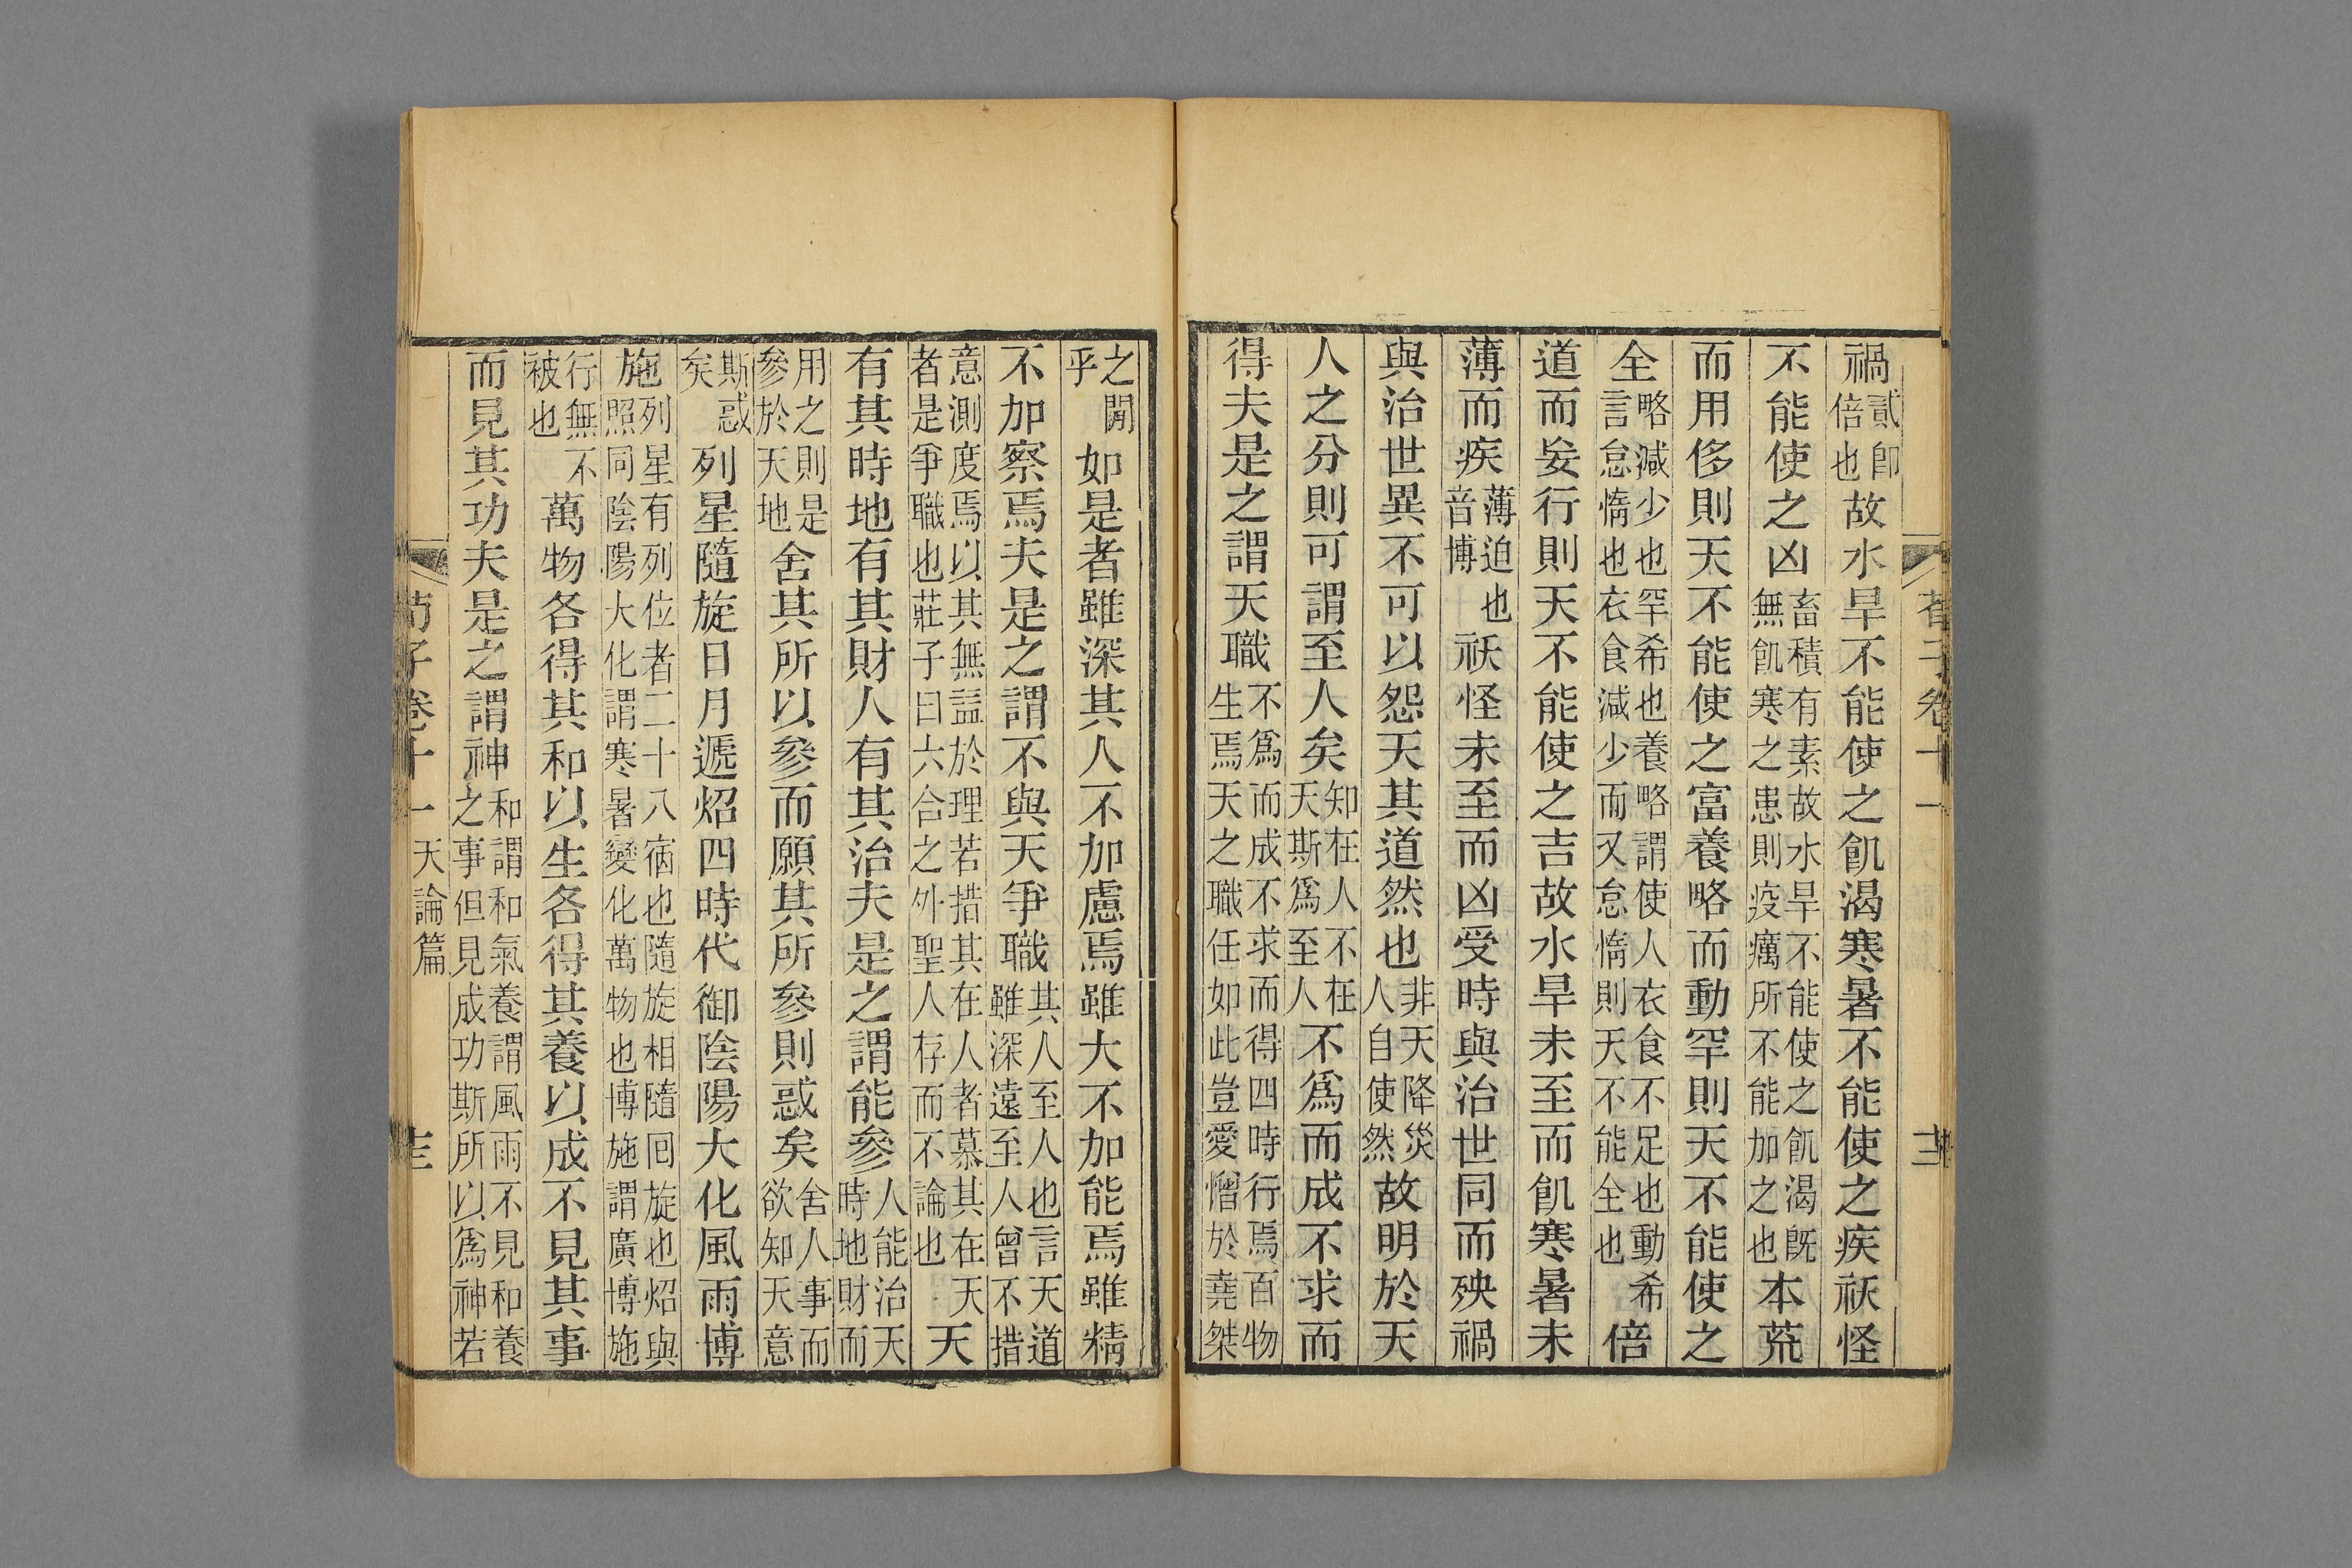 荀子卷十一
禍貳卽倍也故水旱不能使之飢渴寒暑不能使之疾祅怪
不能使之凶畜積有素故水旱不能使之飢渴旣無飢寒之患則疫癘所不能加之也本荒
而用侈則天不能使之富養略而動罕則天不能使之
全略減少也罕希也養略謂使人衣食不足也動希言怠惰也衣食減少而又怠惰則天不能全也倍
道而妄行則天不能使之吉故水旱未至而飢寒暑未
薄而疾薄迫也音博祅怪未至而凶受時與治世同而殃禍
與治世異不可以怨天其道然也非天降災人自使然故明於天
人之分則可謂至人矣知在人不在天斯爲至人不爲而成不求而
得夫是之謂天職不爲而成不求而得四時行焉百物生焉天之職任如此豈愛憎於堯桀
之閒乎如是者雖深其人不加慮焉雖大不加能焉雖精
不加察焉夫是之謂不與天爭職其人至人也言天道雖深遠至人曾不措
意測度焉以其無益於理若措其在人者慕其在天者是爭職也莊子曰六合之外聖人存而不論也天
有其時地有其財人有其治夫是之謂能參人能治天時地財而
用之則是參於天地舍其所以參而願其所參則惑矣舍人事而欲知天意
斯惑矣列星隨旋日月遞炤四時代御陰陽大化風雨博
施列星有列位者二十八宿也隨旋相隨回旋也炤與照同陰陽大化謂寒暑變化萬物也博施謂廣博施
行無不被也萬物各得其和以生各得其養以成不見其事
而見其功夫是之謂神和謂和氣養謂風雨不見和養之事但見成功斯所以爲神若
荀子卷十一 天論篇